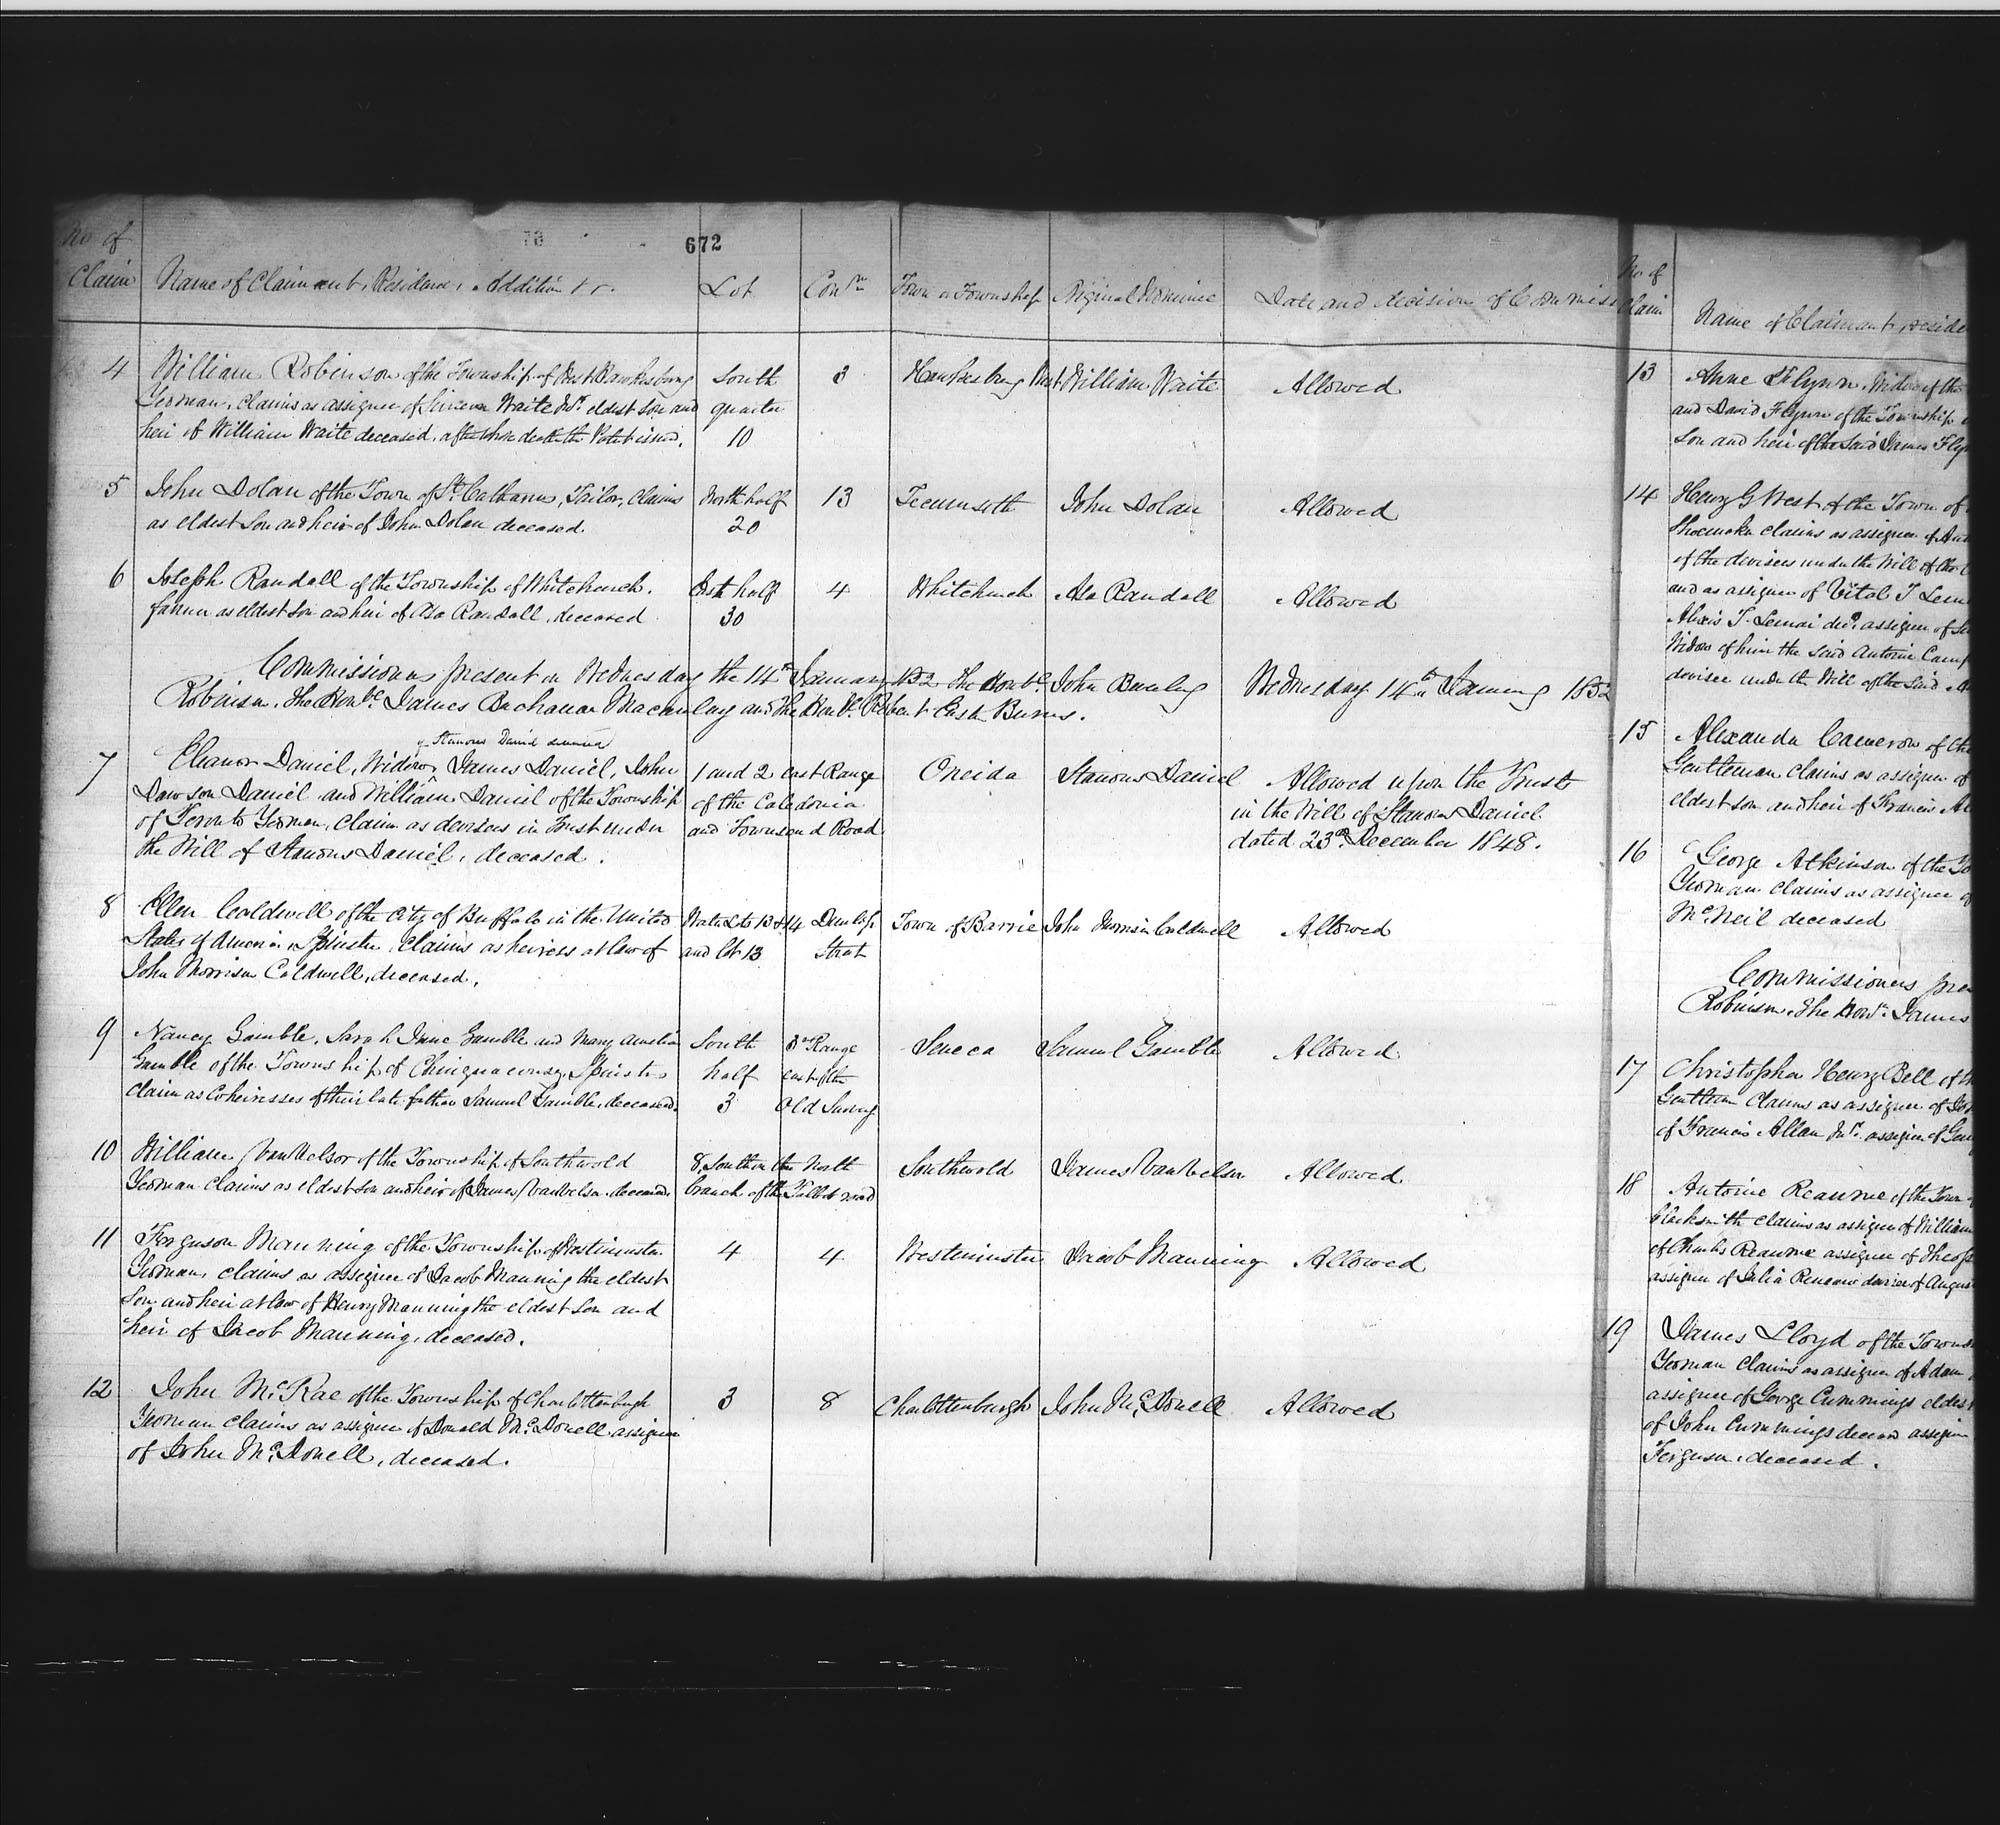 672
No of Claim Name of Claimant, Residence, Addition &c. Lot Conn Town or Township Original Nominee Date and decision of Commiss
4 William Robinson of the Township of West Hawkesbury South 3 Hawkesbury West William Waite Allowed
Yeoman, claims as assignee of Waite Junr eldest son and quarter
heir of William Waite deceased, after whose death the Patent issued. 10
5 John Dolan of the Town of St Catharines, Tailor, claims North half 13 Tecumseth John Dolan Allowed
as eldest son and heir of John Dolan deceased. 20
6 Joseph Randall of the Township of Whitchurch. East half 4 Whitchurch Asa Randall Allowed
farmer as eldest son and heir of Asa Randall, deceased 30
Commissioners present on Wednesday the 14th January 1852 The Honble John Beverley Wednesday 14th January 1852
Robinson, the Honble James Buchanan Macaulay and the Honble Robert Easton Burns.
of Stanous Daniel deceased
7 Eleanor Daniel, Widow, James Daniel, John 1 and 2 east Range Oneida Stanous Daniel Allowed upon the Trusts
Dawson Daniel and William Daniel of the Township of the Caledonia in the Will of Stanous Daniel
of Toronto Yeomen, claim as devisees in Trust under and Townsend Road dated 23rd December 1848.
the Will of Stanous Daniel, deceased.
8 Ellen Caldwell of the City of Buffalo in the United Water Lots 13 & 14 Dunlop Town of Barrie John Morrison Caldwell Allowed
States of America, Spinster, claims as heiress at law of and lot 13 Street
John Morrison Caldwell, deceased.
9 Nancy Gamble, Sarah Jane Gamble and Mary Amelia South 3rd Range Seneca Samuel Gamble Allowed
Gamble of the Township of Chinguacousy, Spinsters half east of the
claim as Coheiresses of their late father Samuel Gamble, deceased. 3 Old Survey
10 William VanVelsor of the Township of Southwold 8, South on the North Southwold James VanVelsor Allowed
Yeoman claims as eldest son and heir of James VanVelsor deceased. branch of the Talbot road
11 Ferguson Manning of the Township of Westminster 4 4 Westminster Jacob Manning Allowed
Yeoman, claims as assignee of Jacob Manning the eldest
son and heir at law of Henry Manning the eldest son and
heir of Jacob Manning, deceased.
12 John McRae of the Township of Charlottenburgh 3 8 Charlottenburgh John McDonell Allowed
Yeoman claims as assignee of Donald McDonell assignee
of John McDonell, deceased.
No of Claim Name of Claimant, reside
13 Anne Flynn, Widow of the
and David Flynn of the Township
son and heir of the said James Flyn
14 Henry G West of the Town of
Shoemaker claims as assignee of
of the devisees under the Will of the
and as assignee of Vital T
Alexis T. Lemai decd assignee of
Widow of him the said Antoine Camp
devisee under the Will of the said
15 Alexander Cameron of the
Gentleman claims as assignee of
eldest son and heir of Francis
16 George Atkinson of the To
Yeoman claims as assignee of
McNeil deceased
Commissioners pre
Robinson, the Honble James
17 Christopher Henry Bell of the
Gentleman claims as assignee of
of Francis Allan Junr assignee of
18 Antoine Reaume of the Town
blacksmith claims as assignee of William
of Charles Reaume assignee of Theop
assignee of Julia Reaume devisee of August
19 James Lloyd of the Towns
Yeoman claims as assignee of Adam
assignee of George Cummings eldest
of John Cummings deceased assignee
Ferguson, deceased.